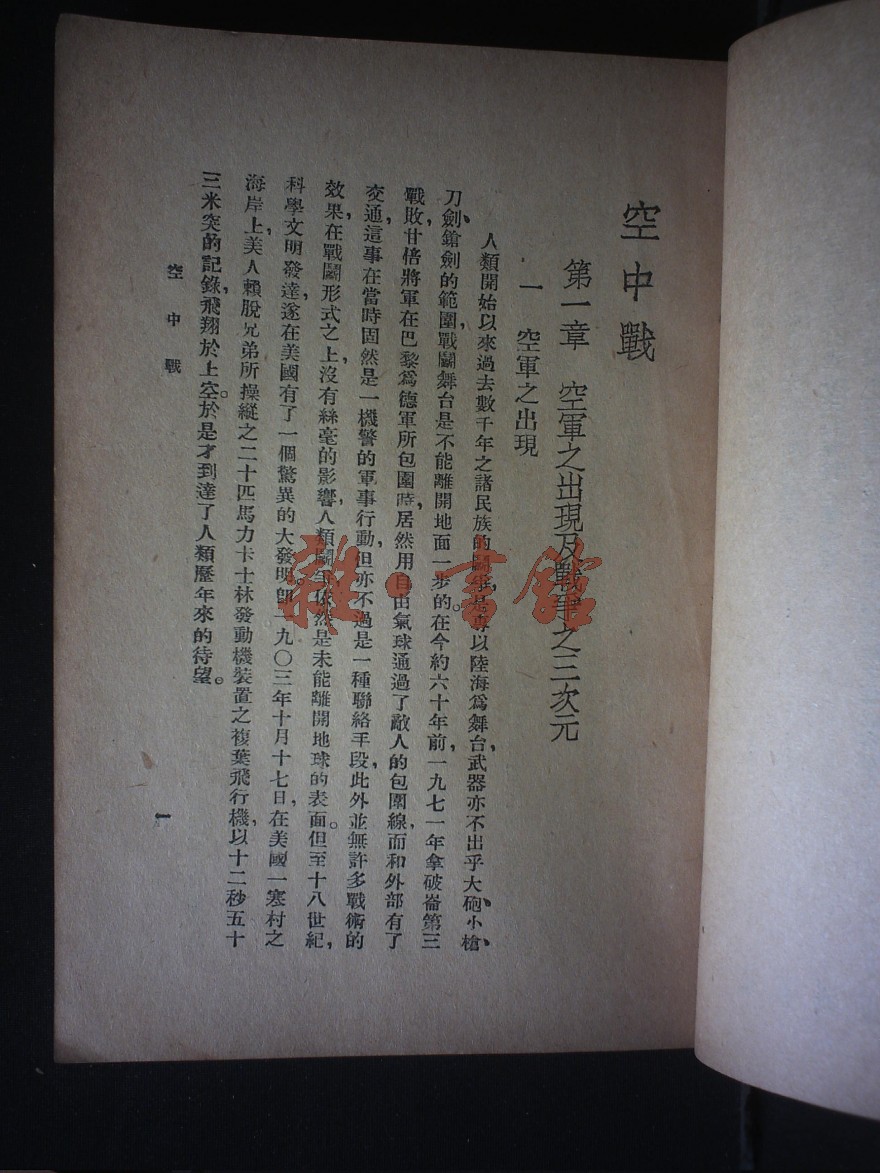 空中戰
第一章 空軍之出現及戰爭之三次元
一 空軍之出現
人類開始以來過去數千年之諸民族的鬭爭，是專以陸海爲舞台，武器亦不出乎大砲、小槍、
刀劍、鎗劍的範圍，戰鬭舞台是不能離開地面一步的。在今約六十年前，一九七一年拿破崙第三
戰敗，甘倍將軍在巴黎爲德軍所包圍時，居然用自由氣球通過了敵人的包圍線，而和外部有了
交通，這事在當時固然是一機警的軍事行動，但亦不過是一種聯絡手段，此外並無許多戰術的
效果，在戰鬭形式之上，沒有絲毫的影響，人類鬭爭依然是未能離開地球的表面。但至十八世紀，
科學文明發達，遂在美國有了一個驚異的大發明。卽一九〇三年十月十七日，在美國一寒村之
海岸上，美人賴脫兄弟所操縱之二十匹馬力卡士林發動機裝置之複葉飛行機，以十二秒五十
三米突的記錄，飛翔於上空。於是才到達了人類歷年來的待望。
空中戰
一
雜·書館